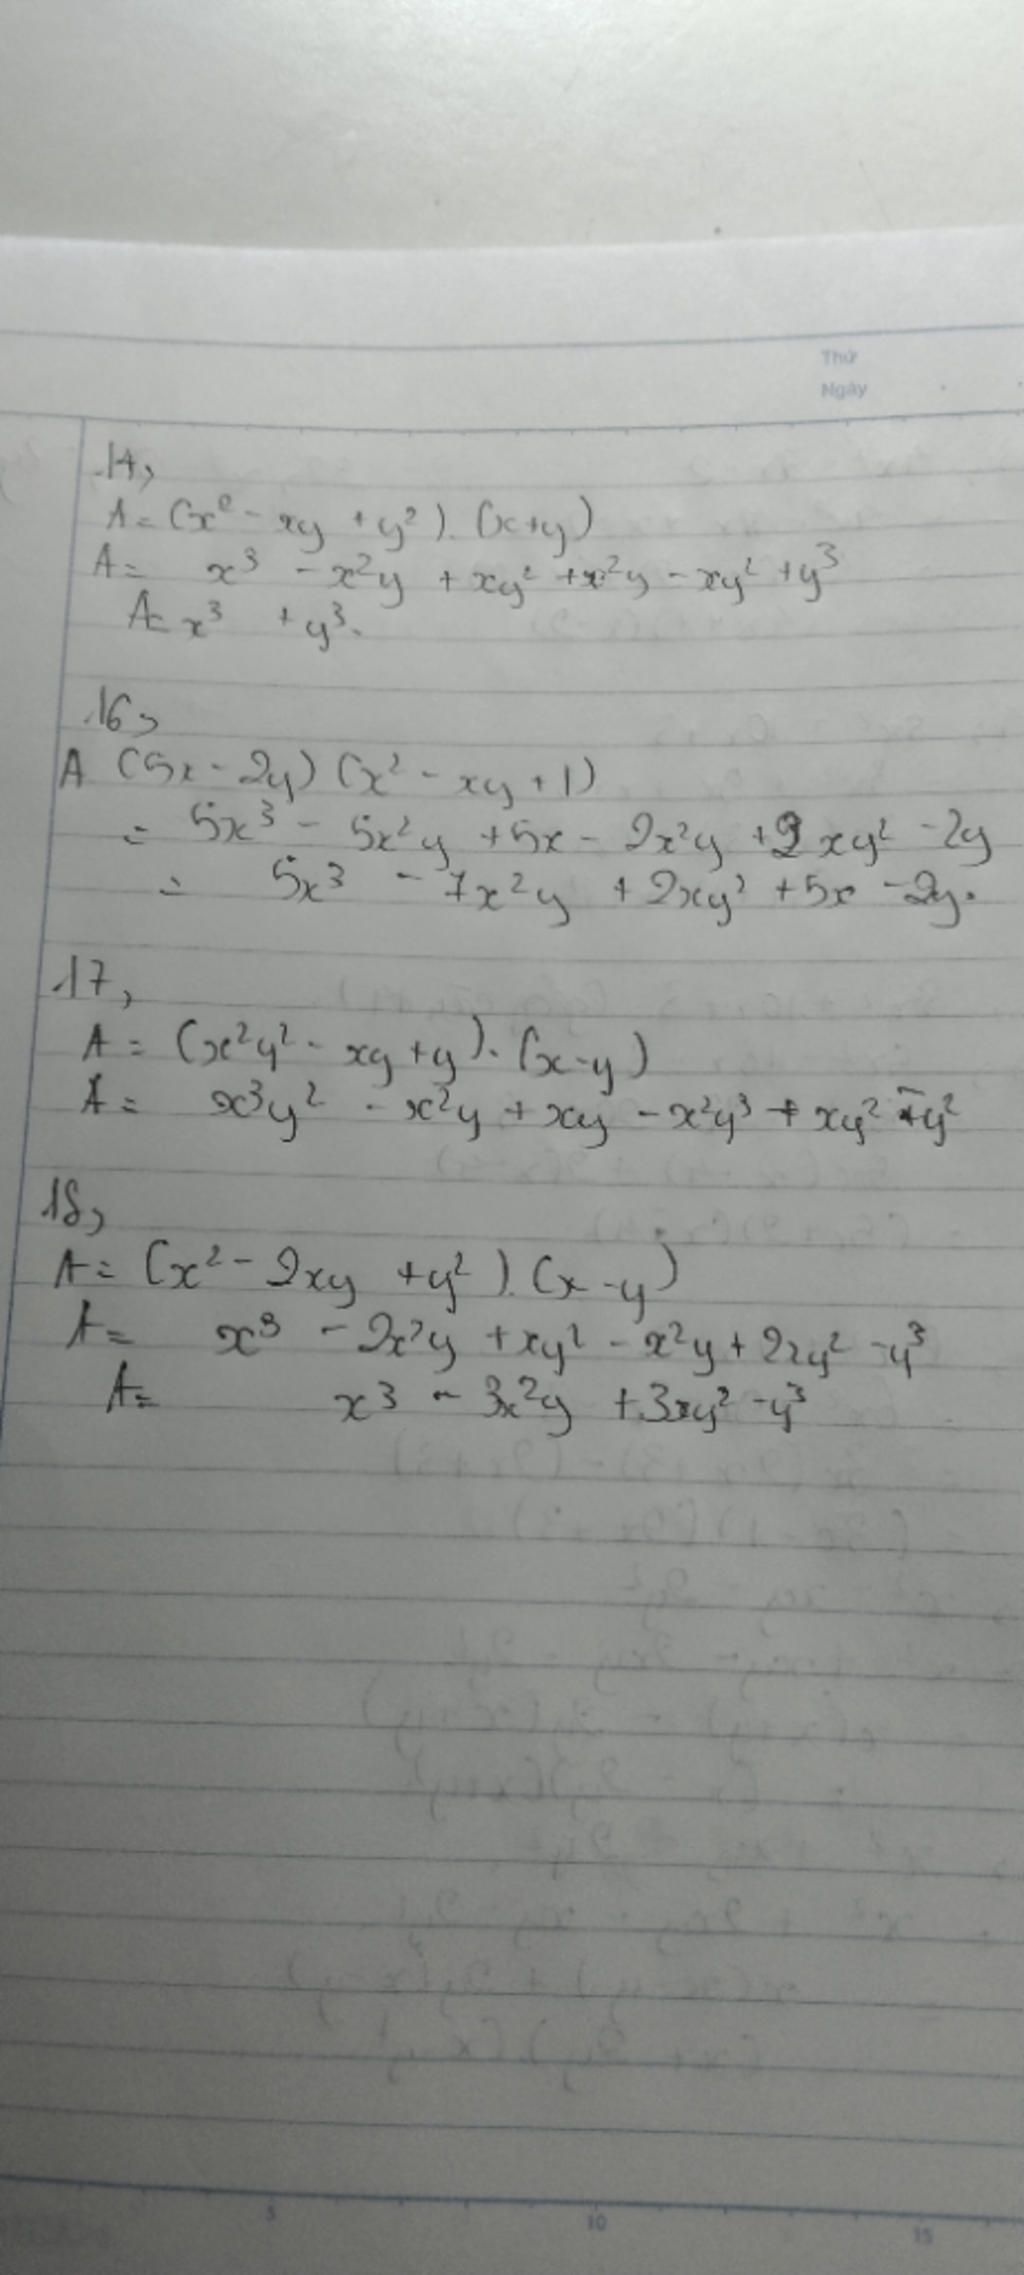 Thứ
Ngày
14,
A = (x² - xy + y²). (x+y)
A = x³ - x²y + xy² + x²y - xy² + y³
A = x³ + y³.
16,
A (5x - 2y) (x² - xy + 1)
= 5x³ - 5x²y + 5x - 2x²y + 2xy² - 2y
= 5x³ - 7x²y + 2xy² + 5x - 2y.
17,
A = (x²y² - xy + y). (x-y)
A = x³y² - x²y + xy - x²y³ + xy² - y²
18,
A = (x² - 2xy + y²). (x - y)
A = x³ - 2x²y + xy² - x²y + 2xy² - y³
A = x³ - 3x²y + 3xy² - y³
5 10 15